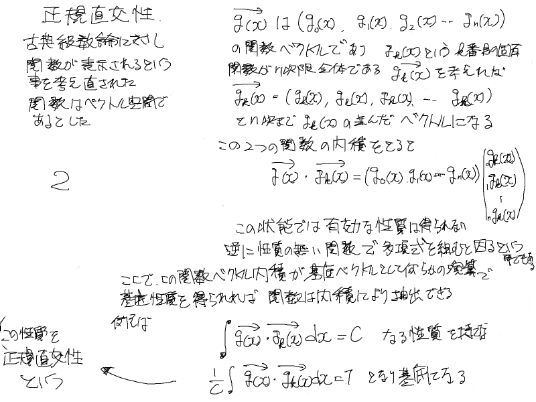 正規直交性
古典級数論に対し
関数が表示されるという
事を考え直された
関数はベクトル空間で
あるとした
2
g(x) は (g₀(x), g₁(x), g₂(x) … gₙ(x))
の関数ベクトルであり gₖ(x) という k番目の
関数が 全体である gₖ(x) を考えれば
gₖ(x) = (gₖ(x), gₖ(x), gₖ(x), … gₖ(x))
とn次まで gₖ(x) の並んだベクトルになる
この2つの関数の内積をとると
g(x)・gₖ(x) = (g₀(x) g₁(x) … gₙ(x)) (gₖ(x) gₖ(x) ⋮ gₖ(x))
この状態では有効な性質は得られない
逆に性質の無い関数で多項式を組むと困るという
事である
ここで、この関数ベクトル内積が基底ベクトルとしてなんらかの演算で
基底性質を得られれば 関数は内積により抽出できる
例えば
∫ g(x)・gₖ(x) dx = C なる性質を持ち
1/C ∫ g(x)・gₖ(x) dx = 1 となり基底になる
この性質を
正規直交性
という